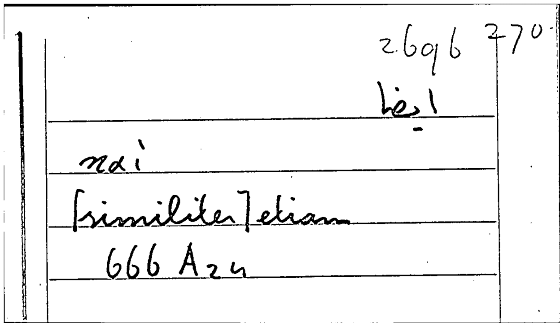 2696 270.
ايضا
καί
[similiter] etiam
666 A24